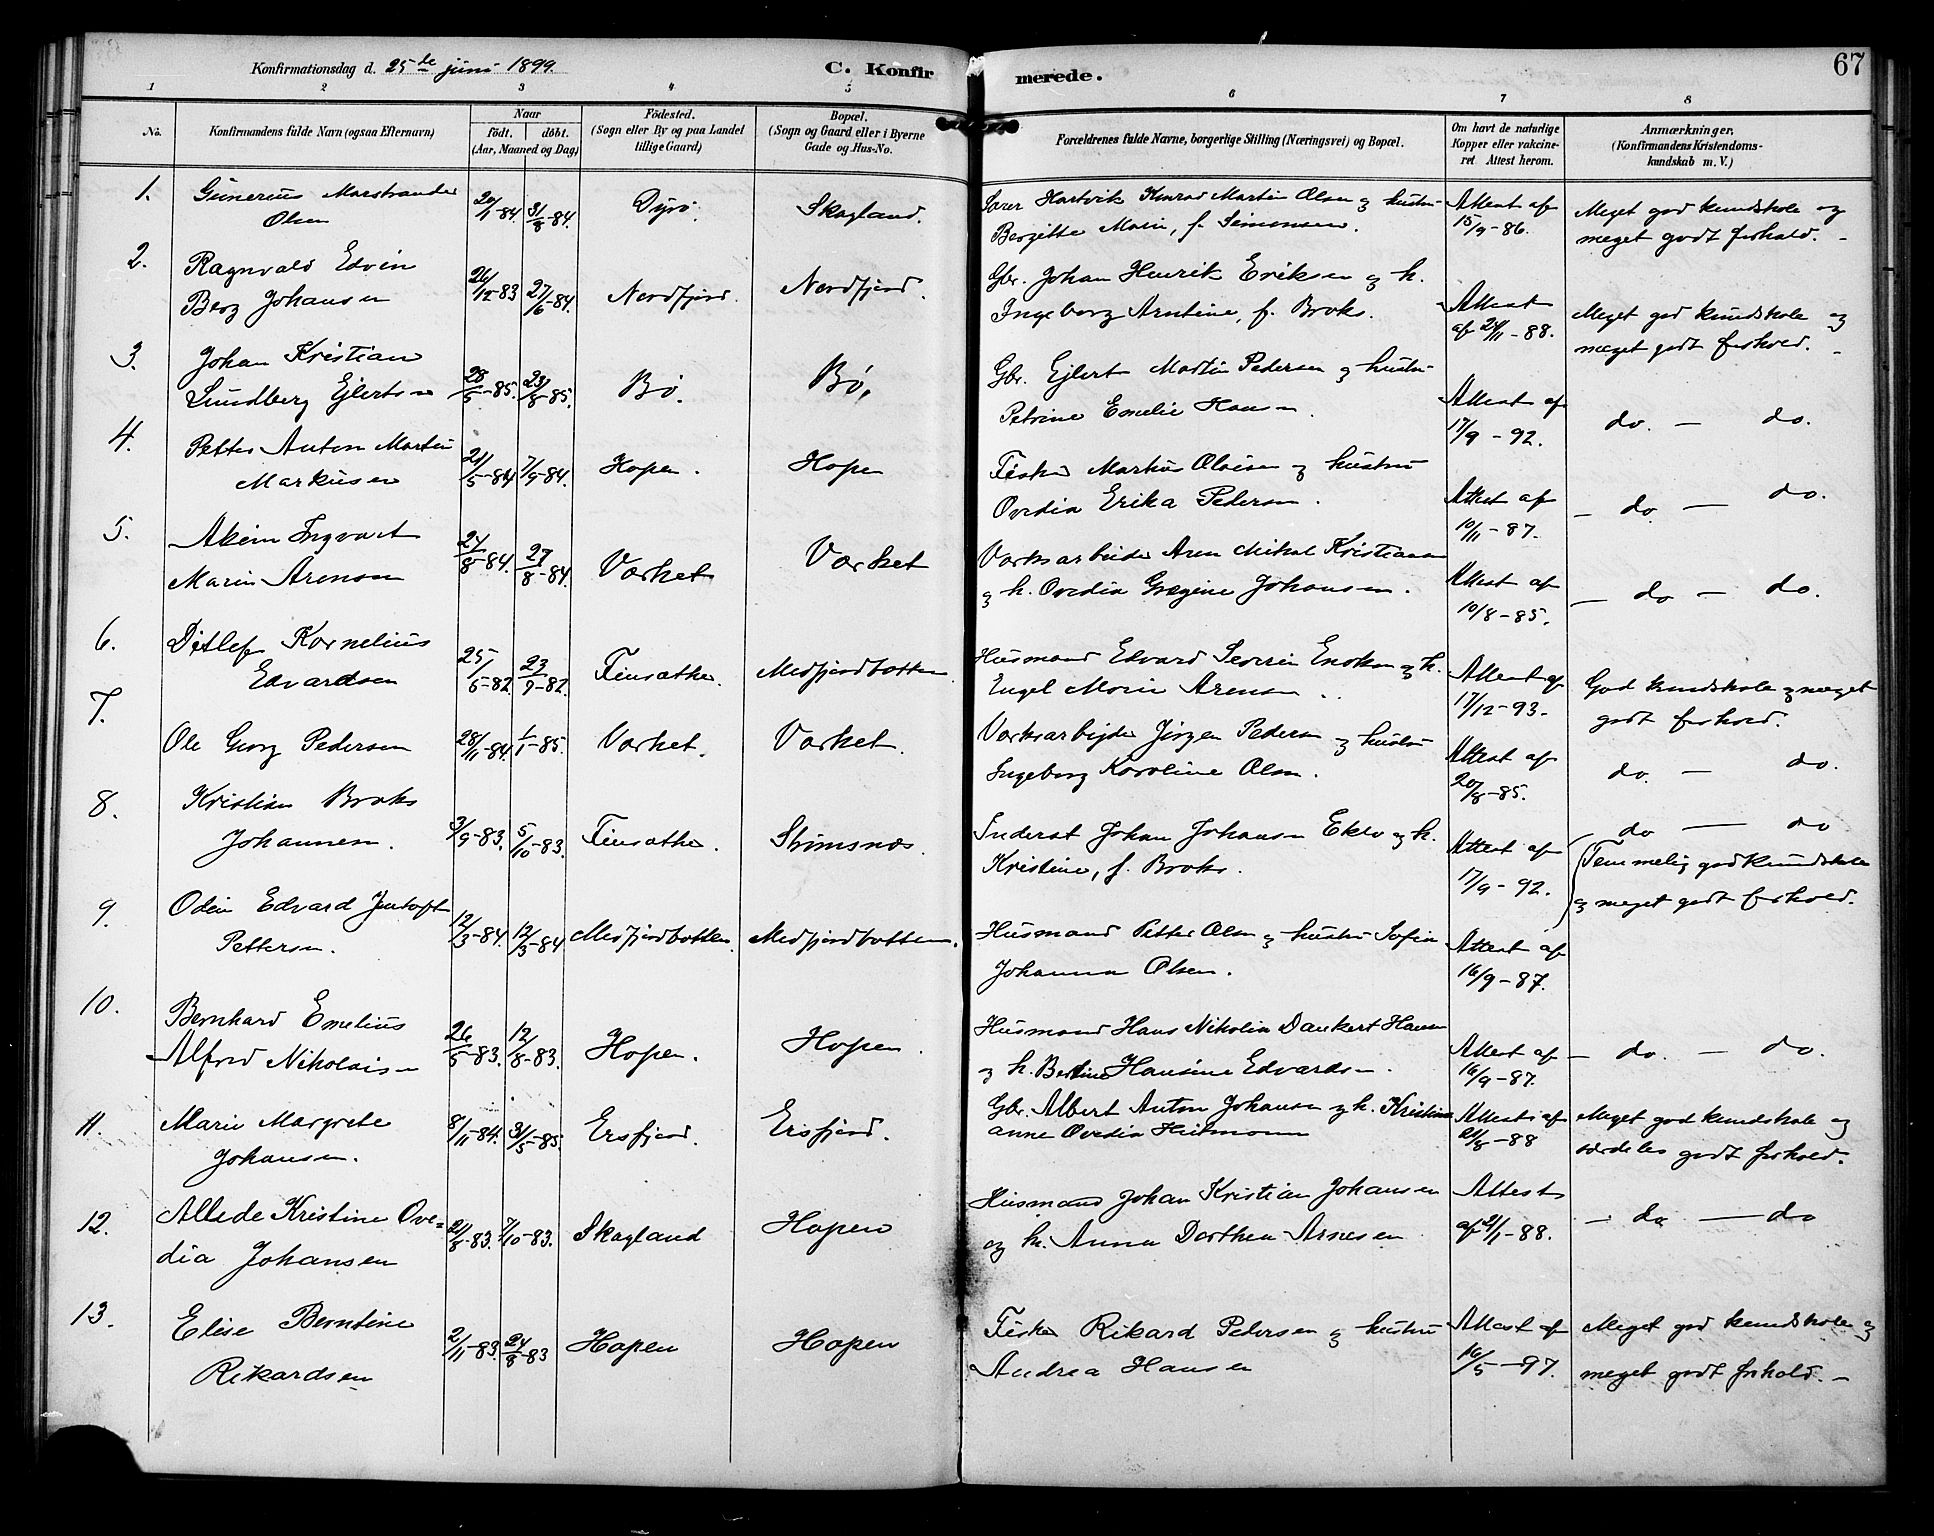 Konfirmationsdag d. 25de juni 1899.
C. Konfirmerede.
67
1 2 3 4 5 6 7 8
No.
Konfirmandens fulde Navn (ogsaa Efternavn)
Naar
födt. döbt.
(Aar, Maaned og Dag)
Födested.
(Sogn eller By og paa Landet
tillige Gaard)
Bopæl.
(Sogn og Gaard eller i Byerne
Gade og Hus-No.
Forældrenes fulde Navne, borgerlige Stilling (Næringsvei) og Bopæl.
Om havt de naturlige
Kopper eller vakcine-
ret Attest herom.
Anmærkninger.
(Konfirmandens Kristendoms-
kundskab m. V.)
1. Gunerius Marstrander
Olsen
20/1-84. 31/8-84. Dyrö. Skogland.
Hartvik Konrad Martin Olsen og hustru
Bergitte Marie, f. Simonsen.
Attest af
15/9-86.
Meget god kundskab og
meget godt forhold. -
2. Ragnvald Edvin
Berg Johansen
26/12-83 27/6-84. Nordfjord. Nordfjord.
Gbr. Johan Henrik Eriksen og h.
Ingeborg Arntine, f. Broks.
Attest
af 24/11-88.
Meget god kundskab og
meget godt forhold. -
3. Johan Kristian
Lundberg Ejlertsen
28/5-85. 23/8-85. Bö. Bö.
Gbr. Ejlert Martin Pedersen og hustru
Petrine Emelie Hansen.
Attest af
17/9-92.
do. - do.
4. Petter Anton Martin
Markusen
21/5-84 7/9-84. Hopen. Hopen
Fisker Markus Olaisen og hustru
Ovedia Erika Pedersen.
Attest af
10/11-87.
- do - do.
5. Akim Ingvart
Marin Arensen
24/8-84. 27/8-84. Værket Værket
Værksarbeider Aren Mikal Kristiansen
og h. Ovedia Gregine Johansen.
Attest af
10/8-85.
- do - do.
6. Ditlef Kornelius
Edvardsen
25/5-82 23/9-82. Finsæther. Medfjordbotten.
Husmand Edvard Severin Enoksen og h.
Engel Marie Arensen.
Attest af
17/12-93.
God kundskab og meget
godt forhold.
7. Ole Georg Pedersen
28/11-84. 1/1-85. Værket. Værket.
Værksarbeider Jörgen Pedersen og hustru
Ingeborg Karoline Olsen.
Attest af
20/8-85.
do. - do.
8. Kristian Broks
Johannsen.
3/9-83. 5/10-83. Finsæther. Strömsnæs.
Inderst Johan Johansen Eklo og h.
Kristine, f. Broks.
Attest af
17/9-92.
do - do
(Temmelig god kundskab
og meget godt forhold.
9. Odin Edvard Jentoft
Pettersen.
12/3-84. 12/5-84 Medfjordbotten. Medfjordbotten.
Husmand Petter Olsen og hustru Sofie
Johanna Olsen.
Attest af
16/9-87.
10. Bernhard Emelius
Alfred Nikolaisen
26/5-83. 12/8-83. Hopen. Hopen.
Husmand Hans Nikolai Dankert Hansen
og h. Bertine Hansine Edvardsen.
Attest af
16/9-87.
- do. - do.
11. Marie Margrete
Johansen.
8/11-84. 31/5-85. Ersfjord. Ersfjord.
Gbr. Albert Anton Johansen og h. Kristine
anne Ovedia Hermann
Attest af
21/8-88
Meget god kundskab og
særdeles godt forhold.
12. Allede Kristine Ove=
dia Johansen
21/8-83. 7/10-83. Skogland Hopen
Husmand Johan Kristian Johansen
og h. Anna Dorthea Arnesen
Attest
af 21/1-88.
- do - do
13. Elise Berntine
Rikardsen
2/11-83. 24/8-83 Hopen Hopen
Fisker Rikard Pedersen og hustru
Andrea Hansen
Attest af
16/5-97.
Meget god kundskab og
meget godt forhold. -